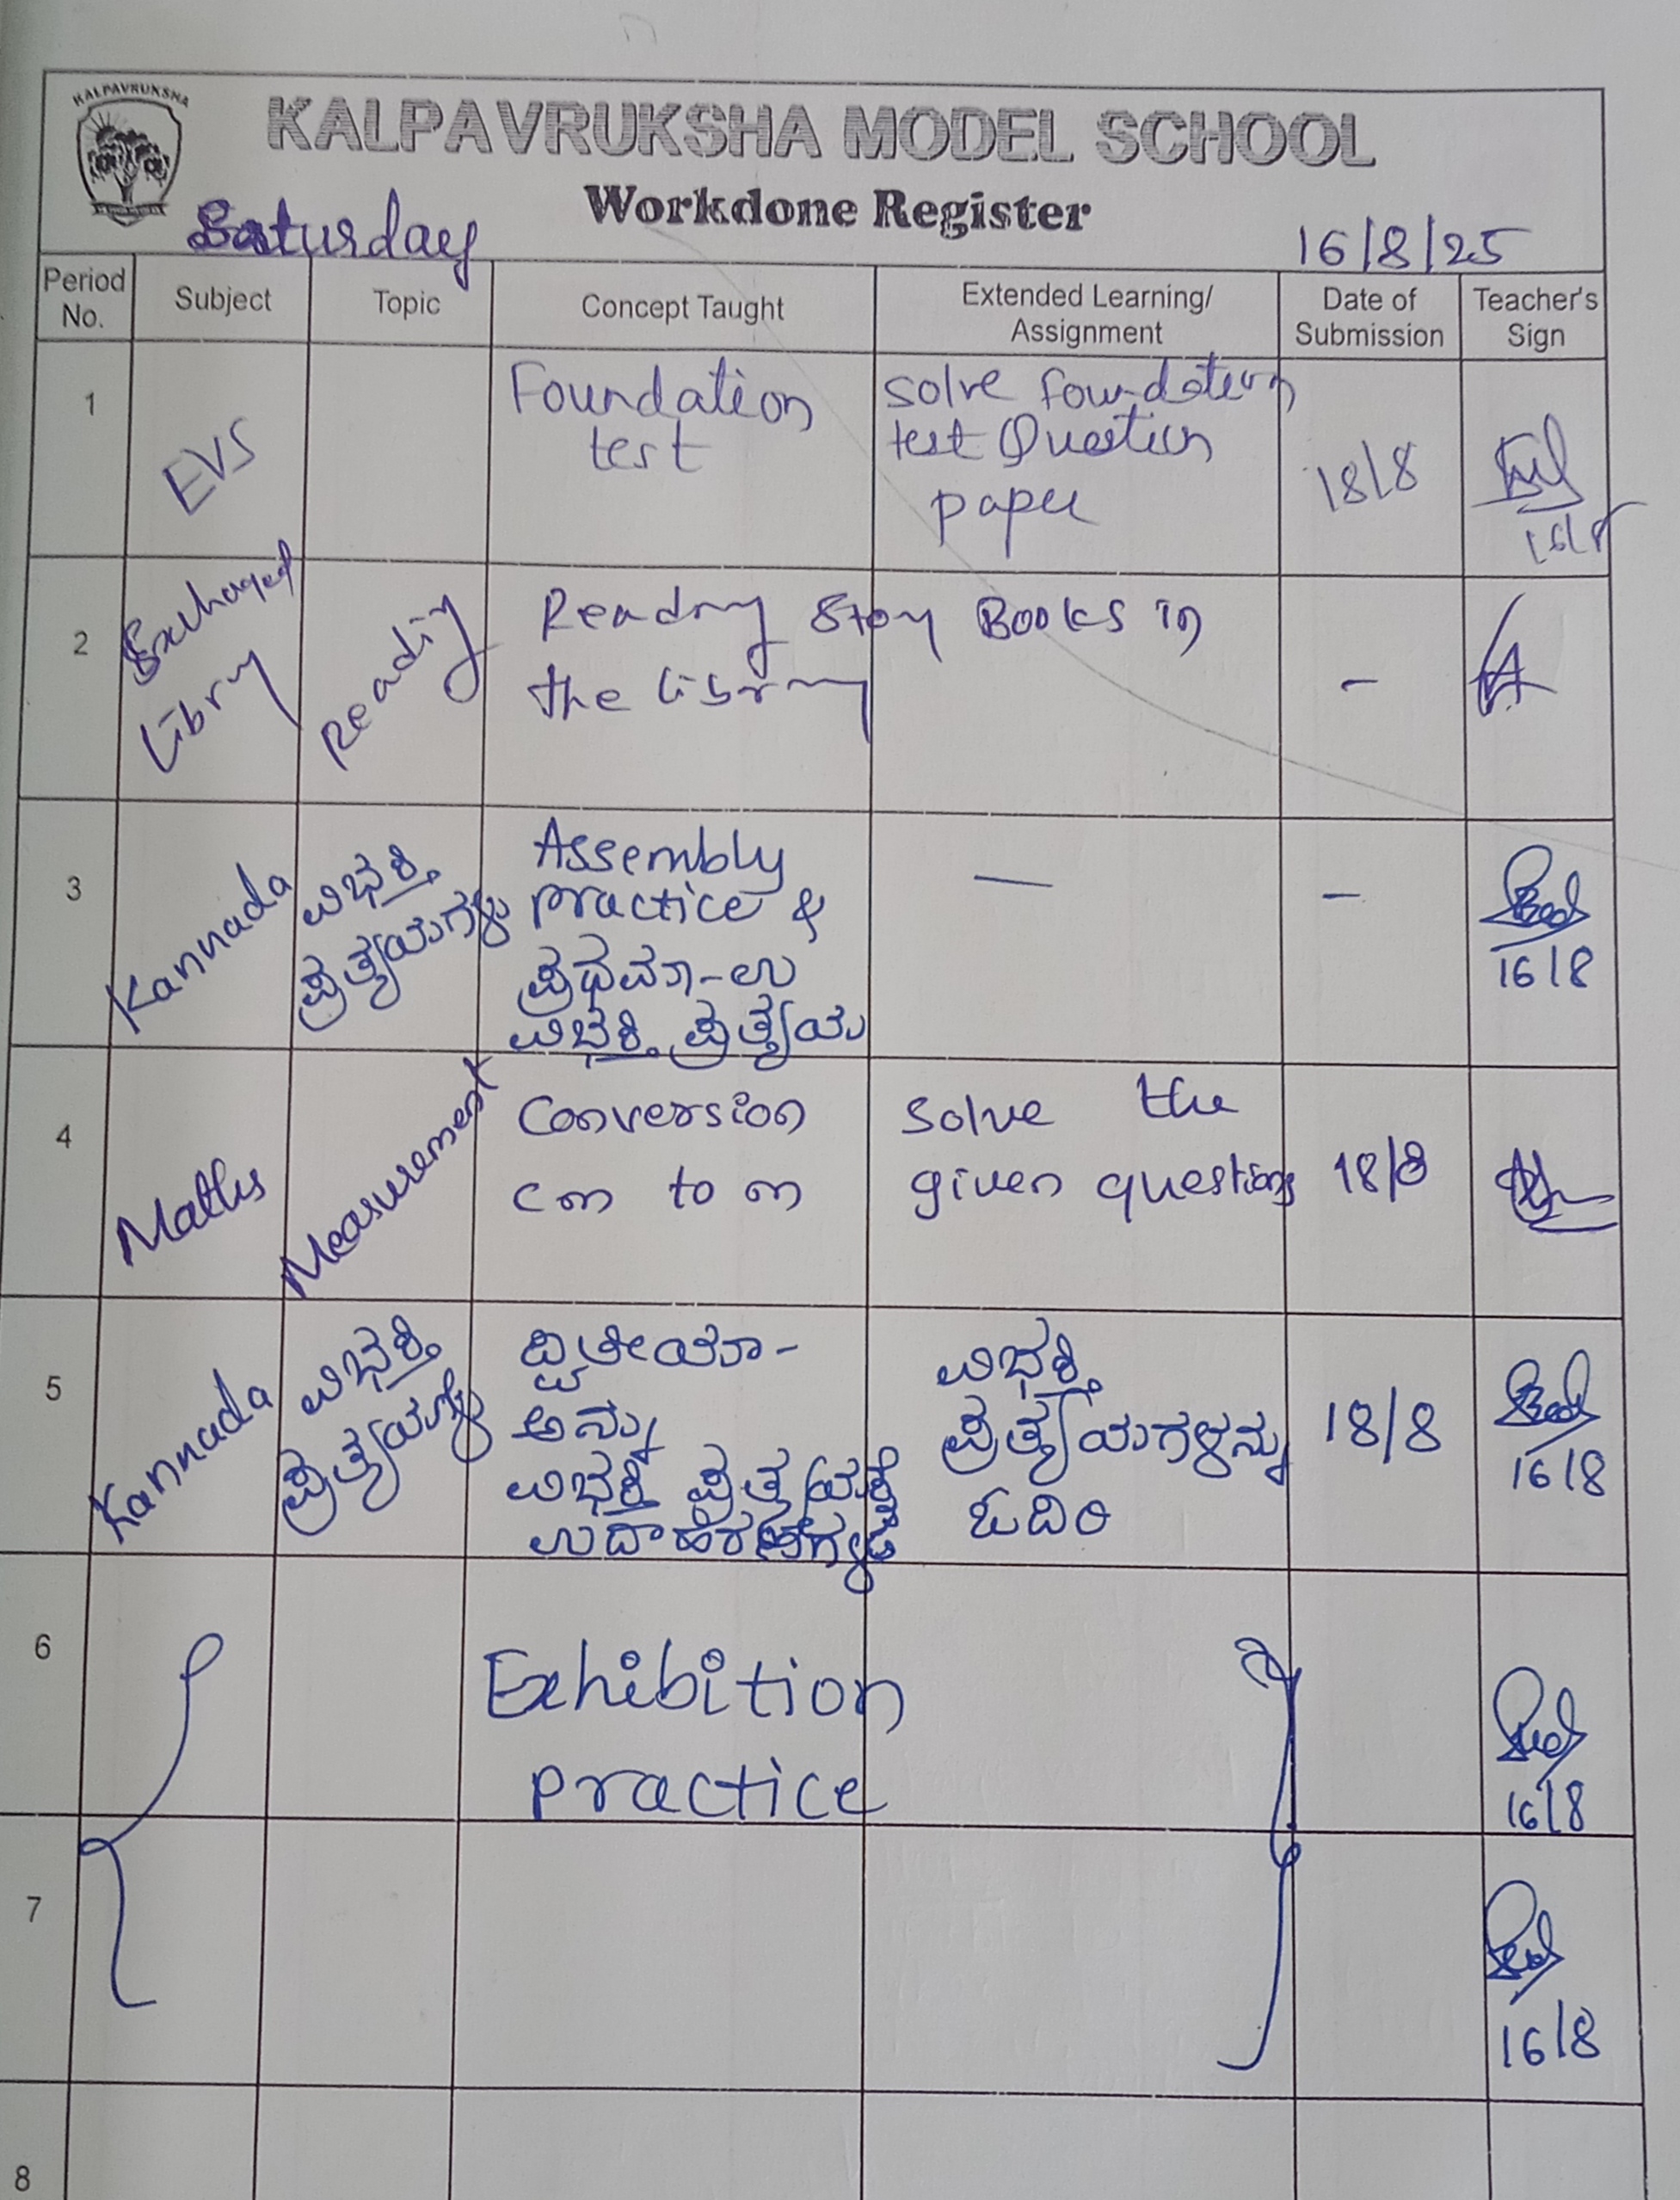 KALPAVRUKSHA
KALPAVRUKSHA MODEL SCHOOL
Workdone Register
Saturday
16/8/25
Period No.
Subject
Topic
Concept Taught
Extended Learning/
Assignment
Date of
Submission
Teacher's
Sign
1
EVS
Foundation
test
Solve foundation
test Question
paper
18/8
16/8
2
Exchanged
Library
Reading
Reading Story Books in
the library
-
3
Kannada
ವಿಭಕ್ತಿ
ಪ್ರತ್ಯಯಗಳು
Assembly
practice &
ಪ್ರಥಮಾ-ಉ
ವಿಭಕ್ತಿ ಪ್ರತ್ಯಯ
—
-
16/8
4
Maths
Measurement
Conversion
cm to m
Solve the
given questions
18/8
5
Kannada
ವಿಭಕ್ತಿ
ಪ್ರತ್ಯಯಗಳು
ದ್ವಿತೀಯಾ-
ಅನ್ನು
ವಿಭಕ್ತಿ ಪ್ರತ್ಯಯಕ್ಕೆ
ವಿಭಕ್ತಿ
ಪ್ರತ್ಯಯಗಳನ್ನು
ಓದಿರಿ
18/8
16/8
6
Exhibition
practice
16/8
7
16/8
8